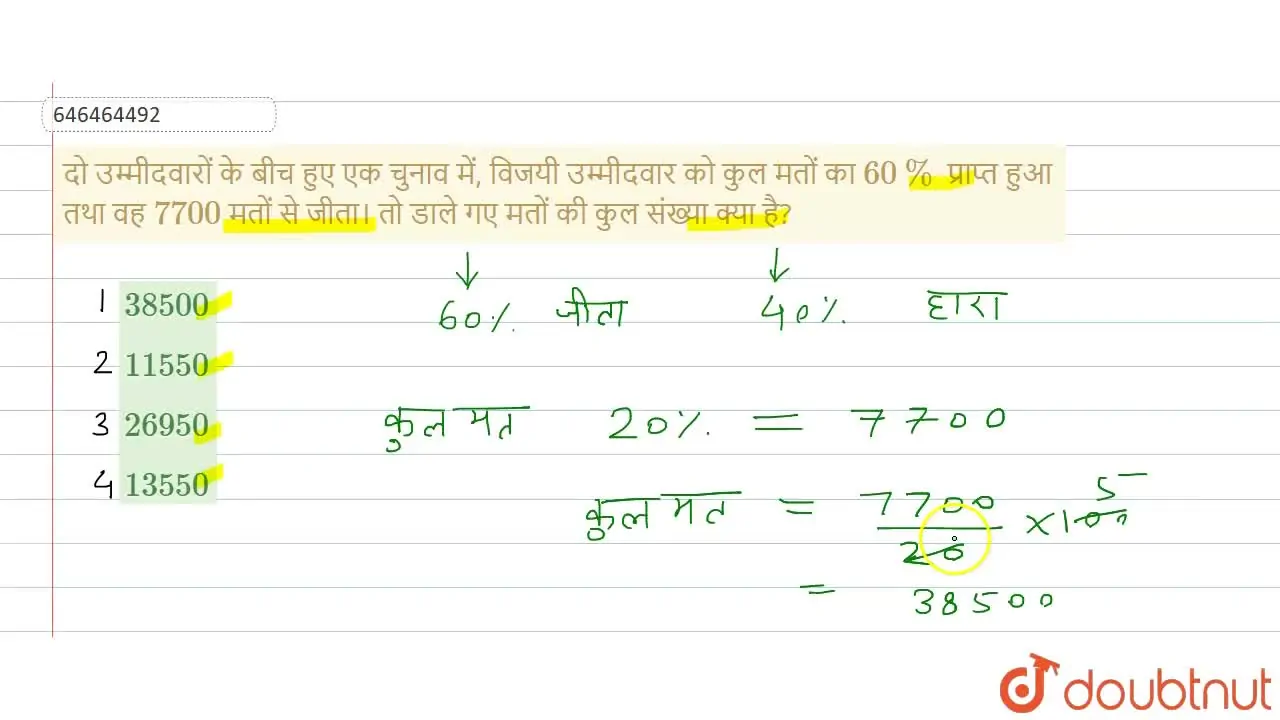 646464492
दो उम्मीदवारों के बीच हुए एक चुनाव में, विजयी उम्मीदवार को कुल मतों का 60 % प्राप्त हुआ
तथा वह 7700 मतों से जीता। तो डाले गए मतों की कुल संख्या क्या है?
1 38500
2 11550
3 26950
4 13550
60% जीता 40% हारा
कुल मत 20% = 7700
कुल मत = 7700/20 × 100 5
= 38500
doubtnut